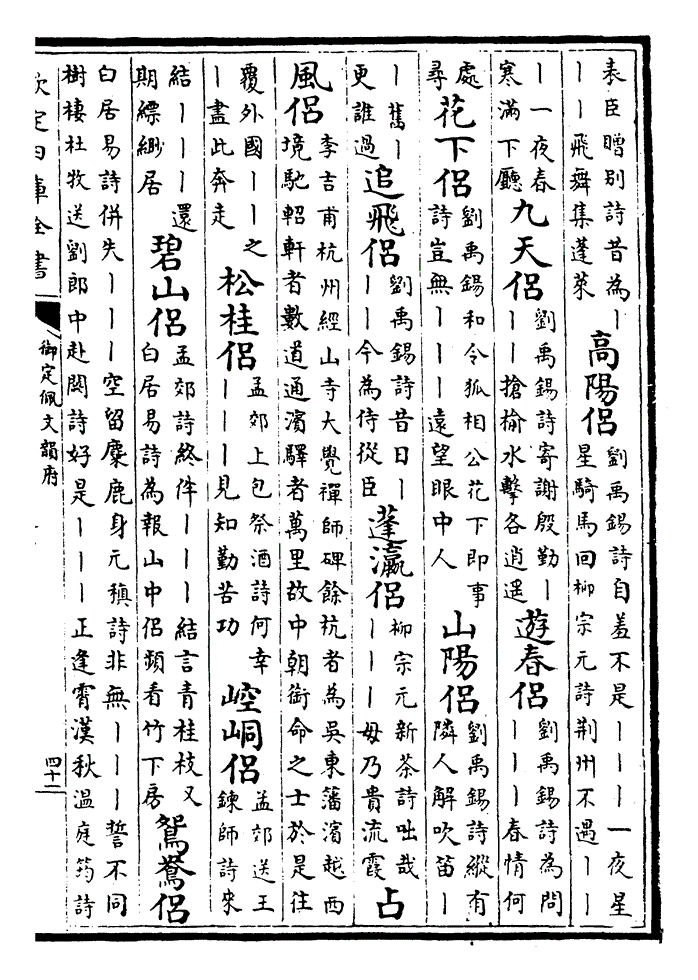 表臣贈別詩昔為丨
丨丨飛舞集蓬萊
高陽侶
劉禹錫詩自羞不是丨丨丨一夜星
星騎馬回柳宗元詩荆州不遇丨丨
丨一夜春
寒滿下廳
九天侶
劉禹錫詩寄謝殷勤丨
丨丨搶榆水擊各逍遥
遊春侶
劉禹錫詩為問
丨丨丨春情何
處
尋
花下侶
劉禹錫和令狐相公花下即事
詩豈無丨丨丨遠望眼中人
山陽侶
劉禹錫詩縱有
隣人解吹笛丨
丨舊丨
更誰過
追飛侶
劉禹錫詩昔日丨
丨丨今為侍從臣
蓬瀛侶
柳宗元新茶詩咄哉
丨丨丨毋乃貴流霞
占
風侶
李吉甫杭州經山寺大覺禪師碑餘杭者為吳東藩濱越西
境馳軺軒者數道通濱驛者萬里故中朝銜命之士於是往
覆外國丨丨之
丨盡此奔走
松桂侶
孟郊上包祭酒詩何幸
丨丨丨見知勤苦功
崆峒侶
孟郊送王
鍊師詩來
結丨丨丨還
期縹緲居
碧山侶
孟郊詩終伴丨丨丨結言青桂枝又
白居易詩為報山中侶頻看竹下房
鴛鴦侶
白居易詩併失丨丨丨空留麋鹿身元稹詩非無丨丨丨誓不同
樹棲杜牧送劉郎中赴闕詩好是丨丨丨正逢霄漢秋溫庭筠詩
欽定四庫全書
御定佩文韻府
四十二